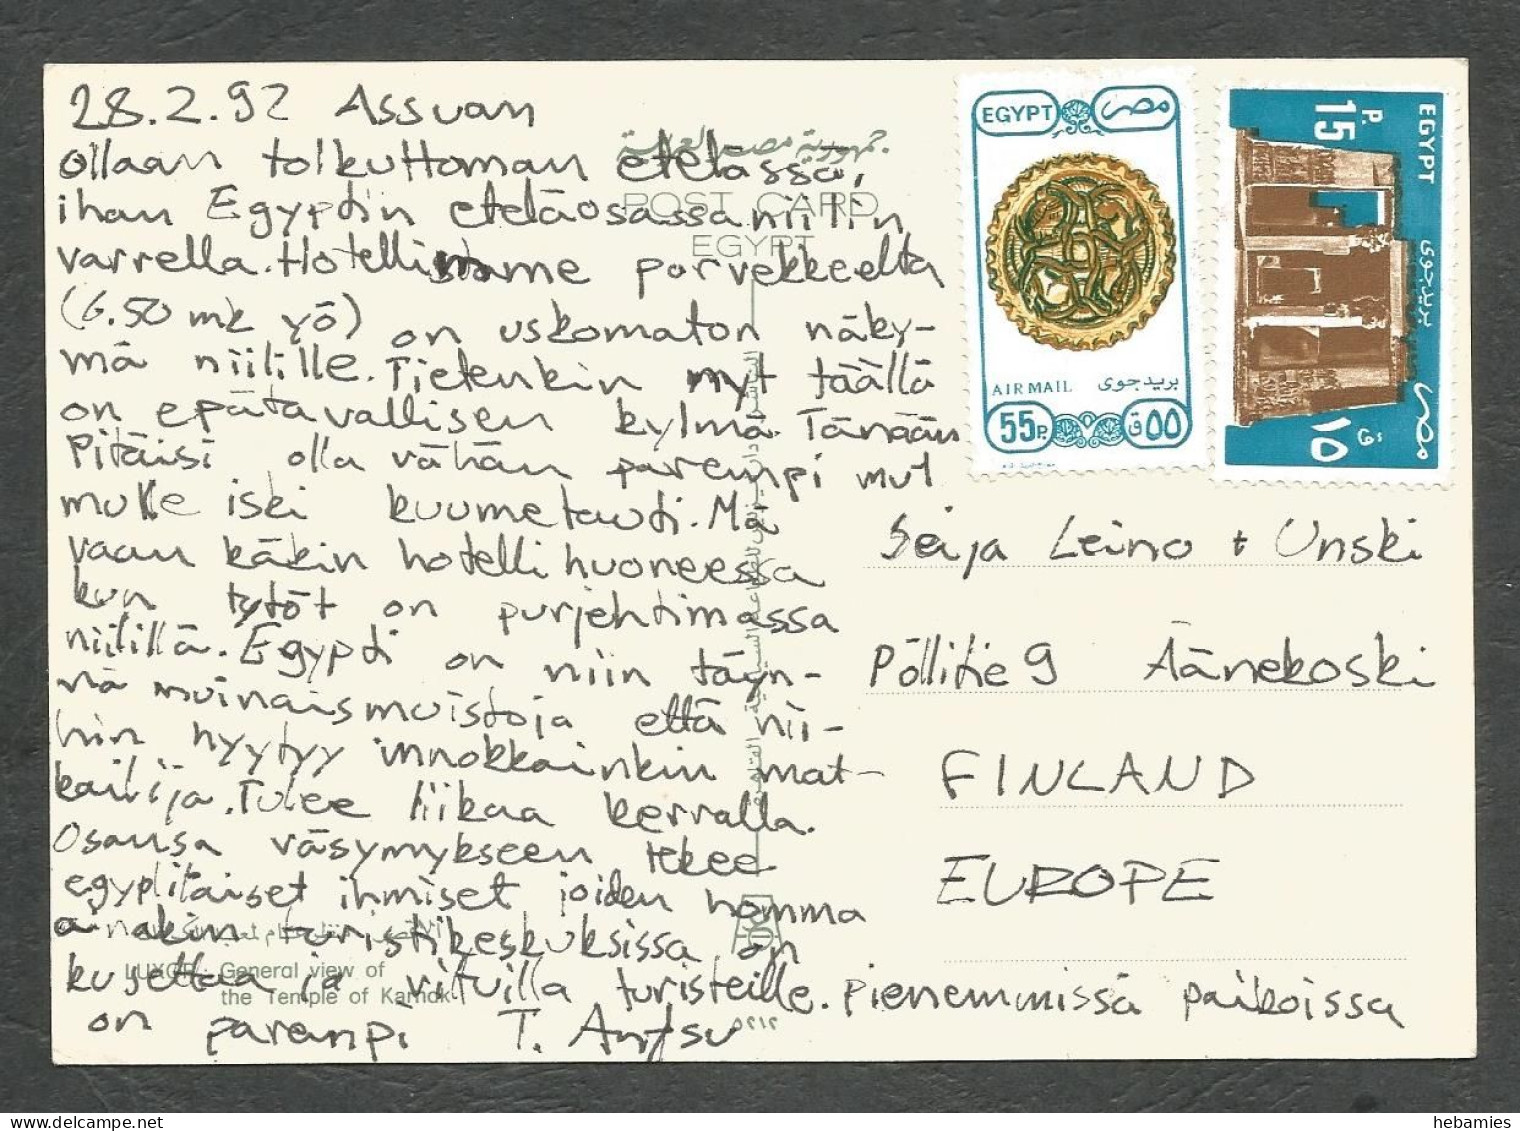 28.2.92 Assuan
ollaan tolkuttoman etelässä,
ihan Egyptin eteläosassa niilin
varrella. Hotellimme parvekkeelta
(6.50 mk yö) on uskomaton näky-
mä niilille. Tietenkin nyt täällä
on epätavallisen kylmä. Tänään
Pitäisi olla vähän parempi mut
mulle iski kuumetauti. Mä
vaan käkin hotellihuoneessa
kun tytöt on purjehtimassa
niilillä. Egypti on niin täyn-
nä muinaismuistoja että nii-
hin hyytyy innokkainkin mat-
kailija. Tulee liikaa kerralla.
Osansa väsymykseen tekee
egyptiläiset ihmiset joiden homma
ainakin turistikeskuksissa on
kusettaa ja vituilla turisteille. Pienemmissä paikoissa
on parempi T. Antsu
جمهورية مصر العربية
POST CARD
EGYPT
LUXOR: General view of
the Temple of Karnak
٥٢١٢
EGYPT مصر
AIR MAIL بريد جوى
55P. ٥٥ق
15 P. EGYPT
بريد جوى
١٥ ق مصر
Seija Leino + Unski
Pöllitie 9 Äänekoski
FINLAND
EUROPE
hebamies